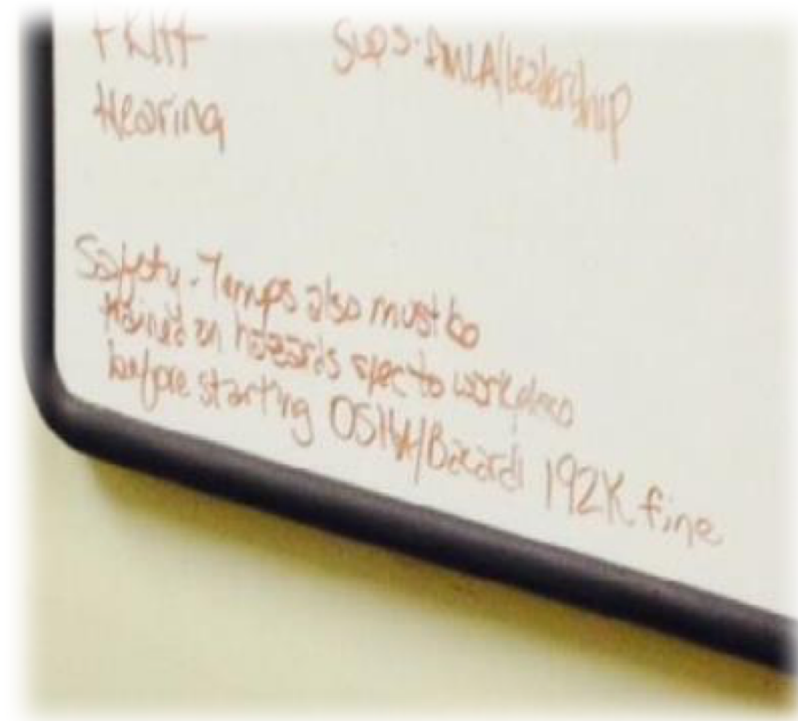 Hearing
Sups. FMLA/leadership
Safety - Temps also must be
trained on hazards spec to workplace
before starting OSHA/Bacardi 192K fine